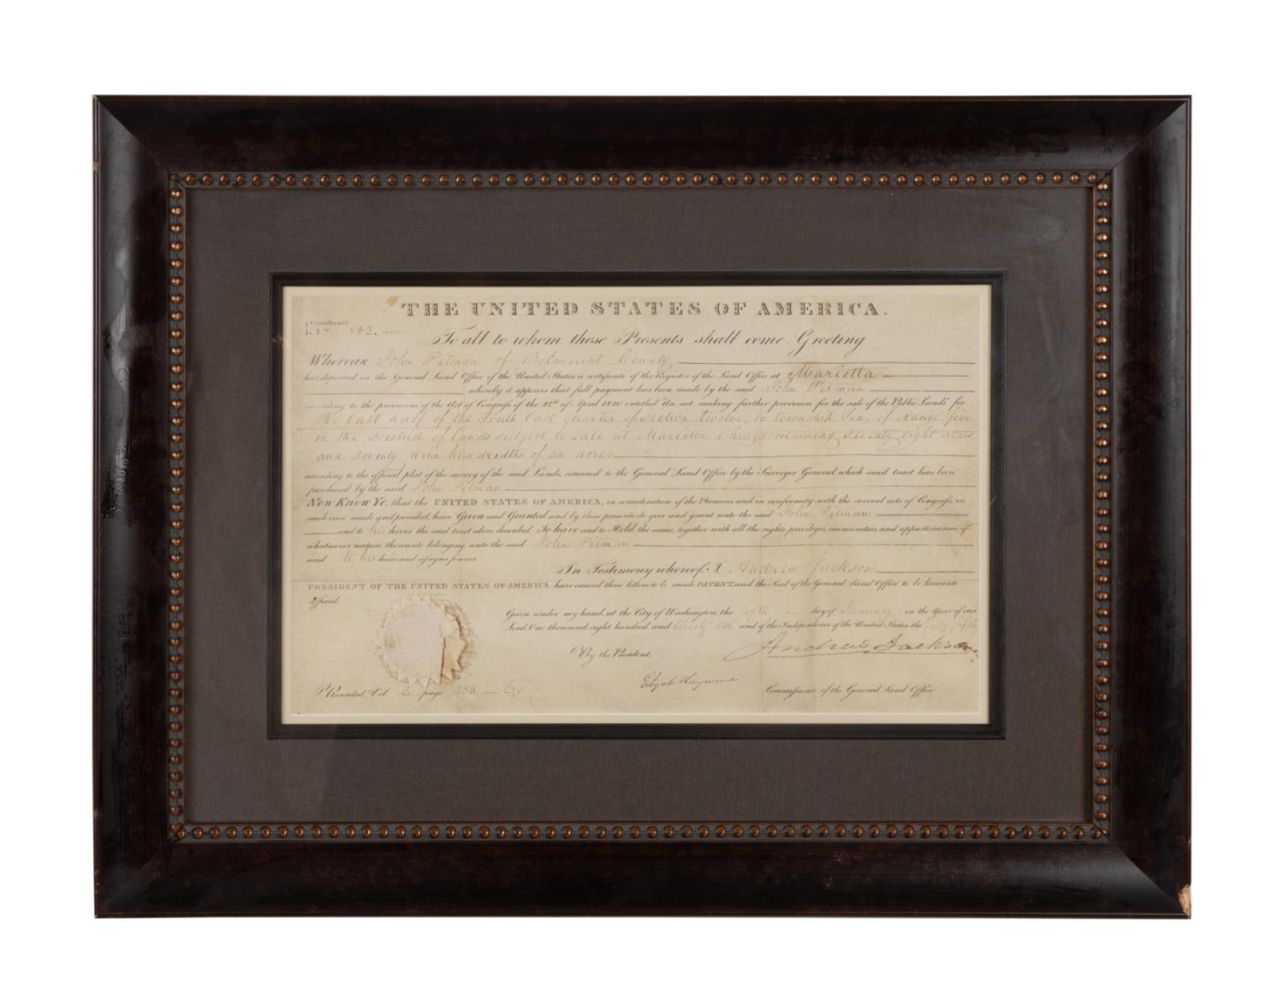 THE UNITED STATES OF AMERICA.
Certificate
No. 832.
To all to whom these Presents shall come, Greeting
Whereas John Pitman, of Belmount County,
has deposited in the General Land Office of the United States, a certificate of the Register of the Land Office at Marietta
whereby it appears that full payment has been made by the said John Pitman
according to the provisions of the Act of Congress of the 24th of April 1820 entitled "An act making further provision for the sale of the Public Lands" for
the East half of the South East quarter of section twelve, in township Six, of Range five
in the District of lands subject to sale at Marietta Ohio, containing seventy eight acres
and seventy nine hundredths of an acre
according to the official plat of the survey of the said Lands, returned to the General Land Office by the Surveyor General, which said tract has been
purchased by the said John Pitman
Now Know Ye, that the UNITED STATES OF AMERICA, in consideration of the Premises, and in conformity with the several acts of Congress, in
such case made and provided, have Given and Granted and by these presents do give and grant unto the said John Pitman
and to his heirs the said tract above described. To have and to Hold the same, together with all the rights privileges, immunities, and appurtenances of
whatsoever nature, thereunto belonging, unto the said John Pitman
and to his heirs and assigns forever
In Testimony whereof, I Andrew Jackson
PRESIDENT OF THE UNITED STATES OF AMERICA, have caused these letters to be made PATENT, and the Seal of the General Land Office to be hereunto
affixed
Given under my hand, at the City of Washington, the day of January in the Year of our
Lord, One thousand, eight hundred and thirty one and of the Independence of the United States the fifty fifth
By the President,
Andrew Jackson
Elijah Hayward Commissioner of the General Land Office
Recorded, Vol. page